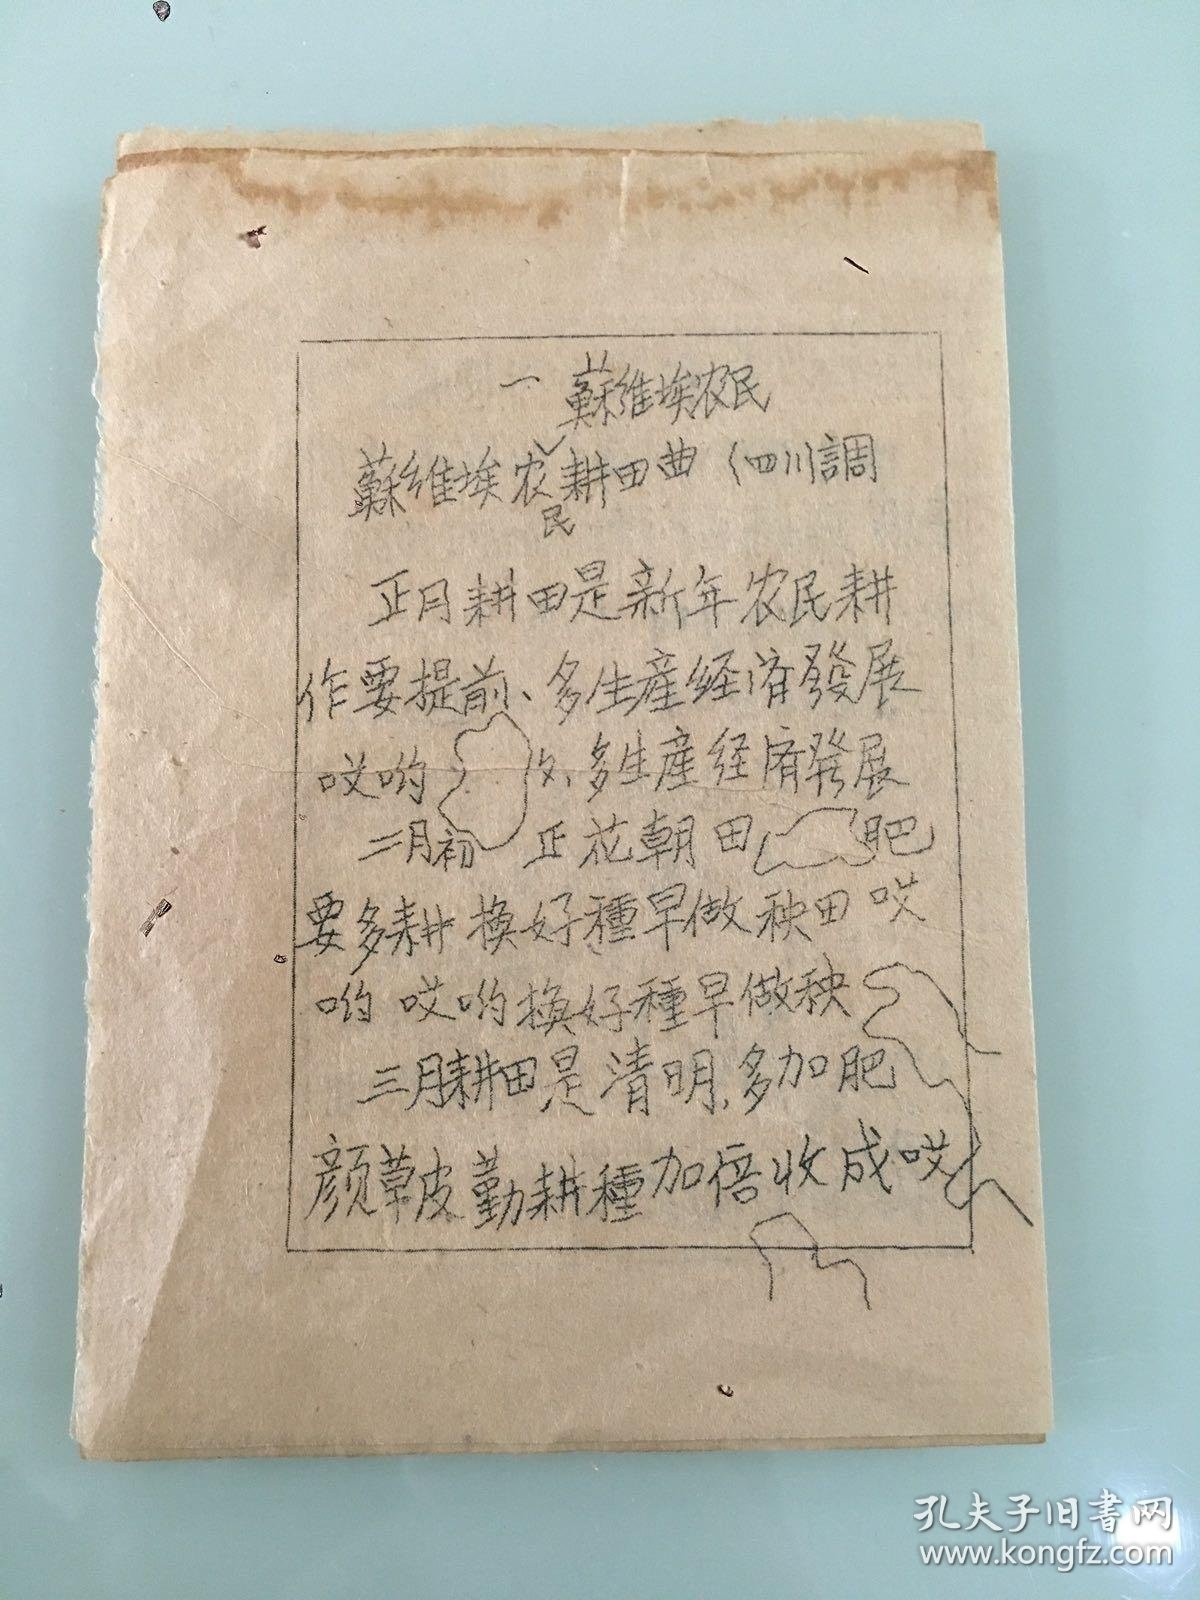 一 蘇維埃农民
蘇維埃农民耕田曲（四川調
正月耕田是新年农民耕
作要提前、多生産経済發展
哎哟 多生産経済發展
二月初 正花朝田 肥
要多耕 换好種早做秧田 哎
哟 哎哟换好種早做秧
三月耕田是清明,多加肥
顔草皮勤耕種加倍收成哎
孔夫子旧书网
www.kongfz.com